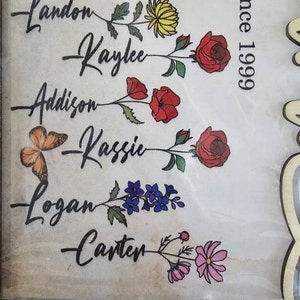 Landon
Kaylee
Addison
Kassie
Logan
Carter
nce 1999